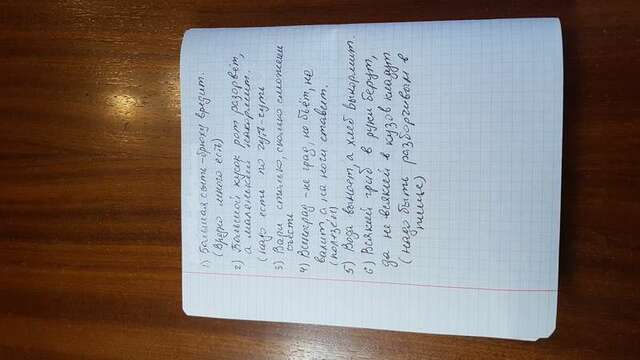 1) Большая сыть - брюху вредит.
(Вредно много есть)
2) Большой кусок рот разорвёт,
а маленький накормит.
(надо есть по чуть-чуть
3) Вари столько, сколько сможешь
съесть
4) Виноград - не град, не бьёт, не
валит, а на ноги ставит.
(полезен)
5) Вода вымоет, а хлеб выкормит.
6) Всякий гриб в руки берут,
да не всякий в кузов кладут
(надо быть разборчивым в
пище)